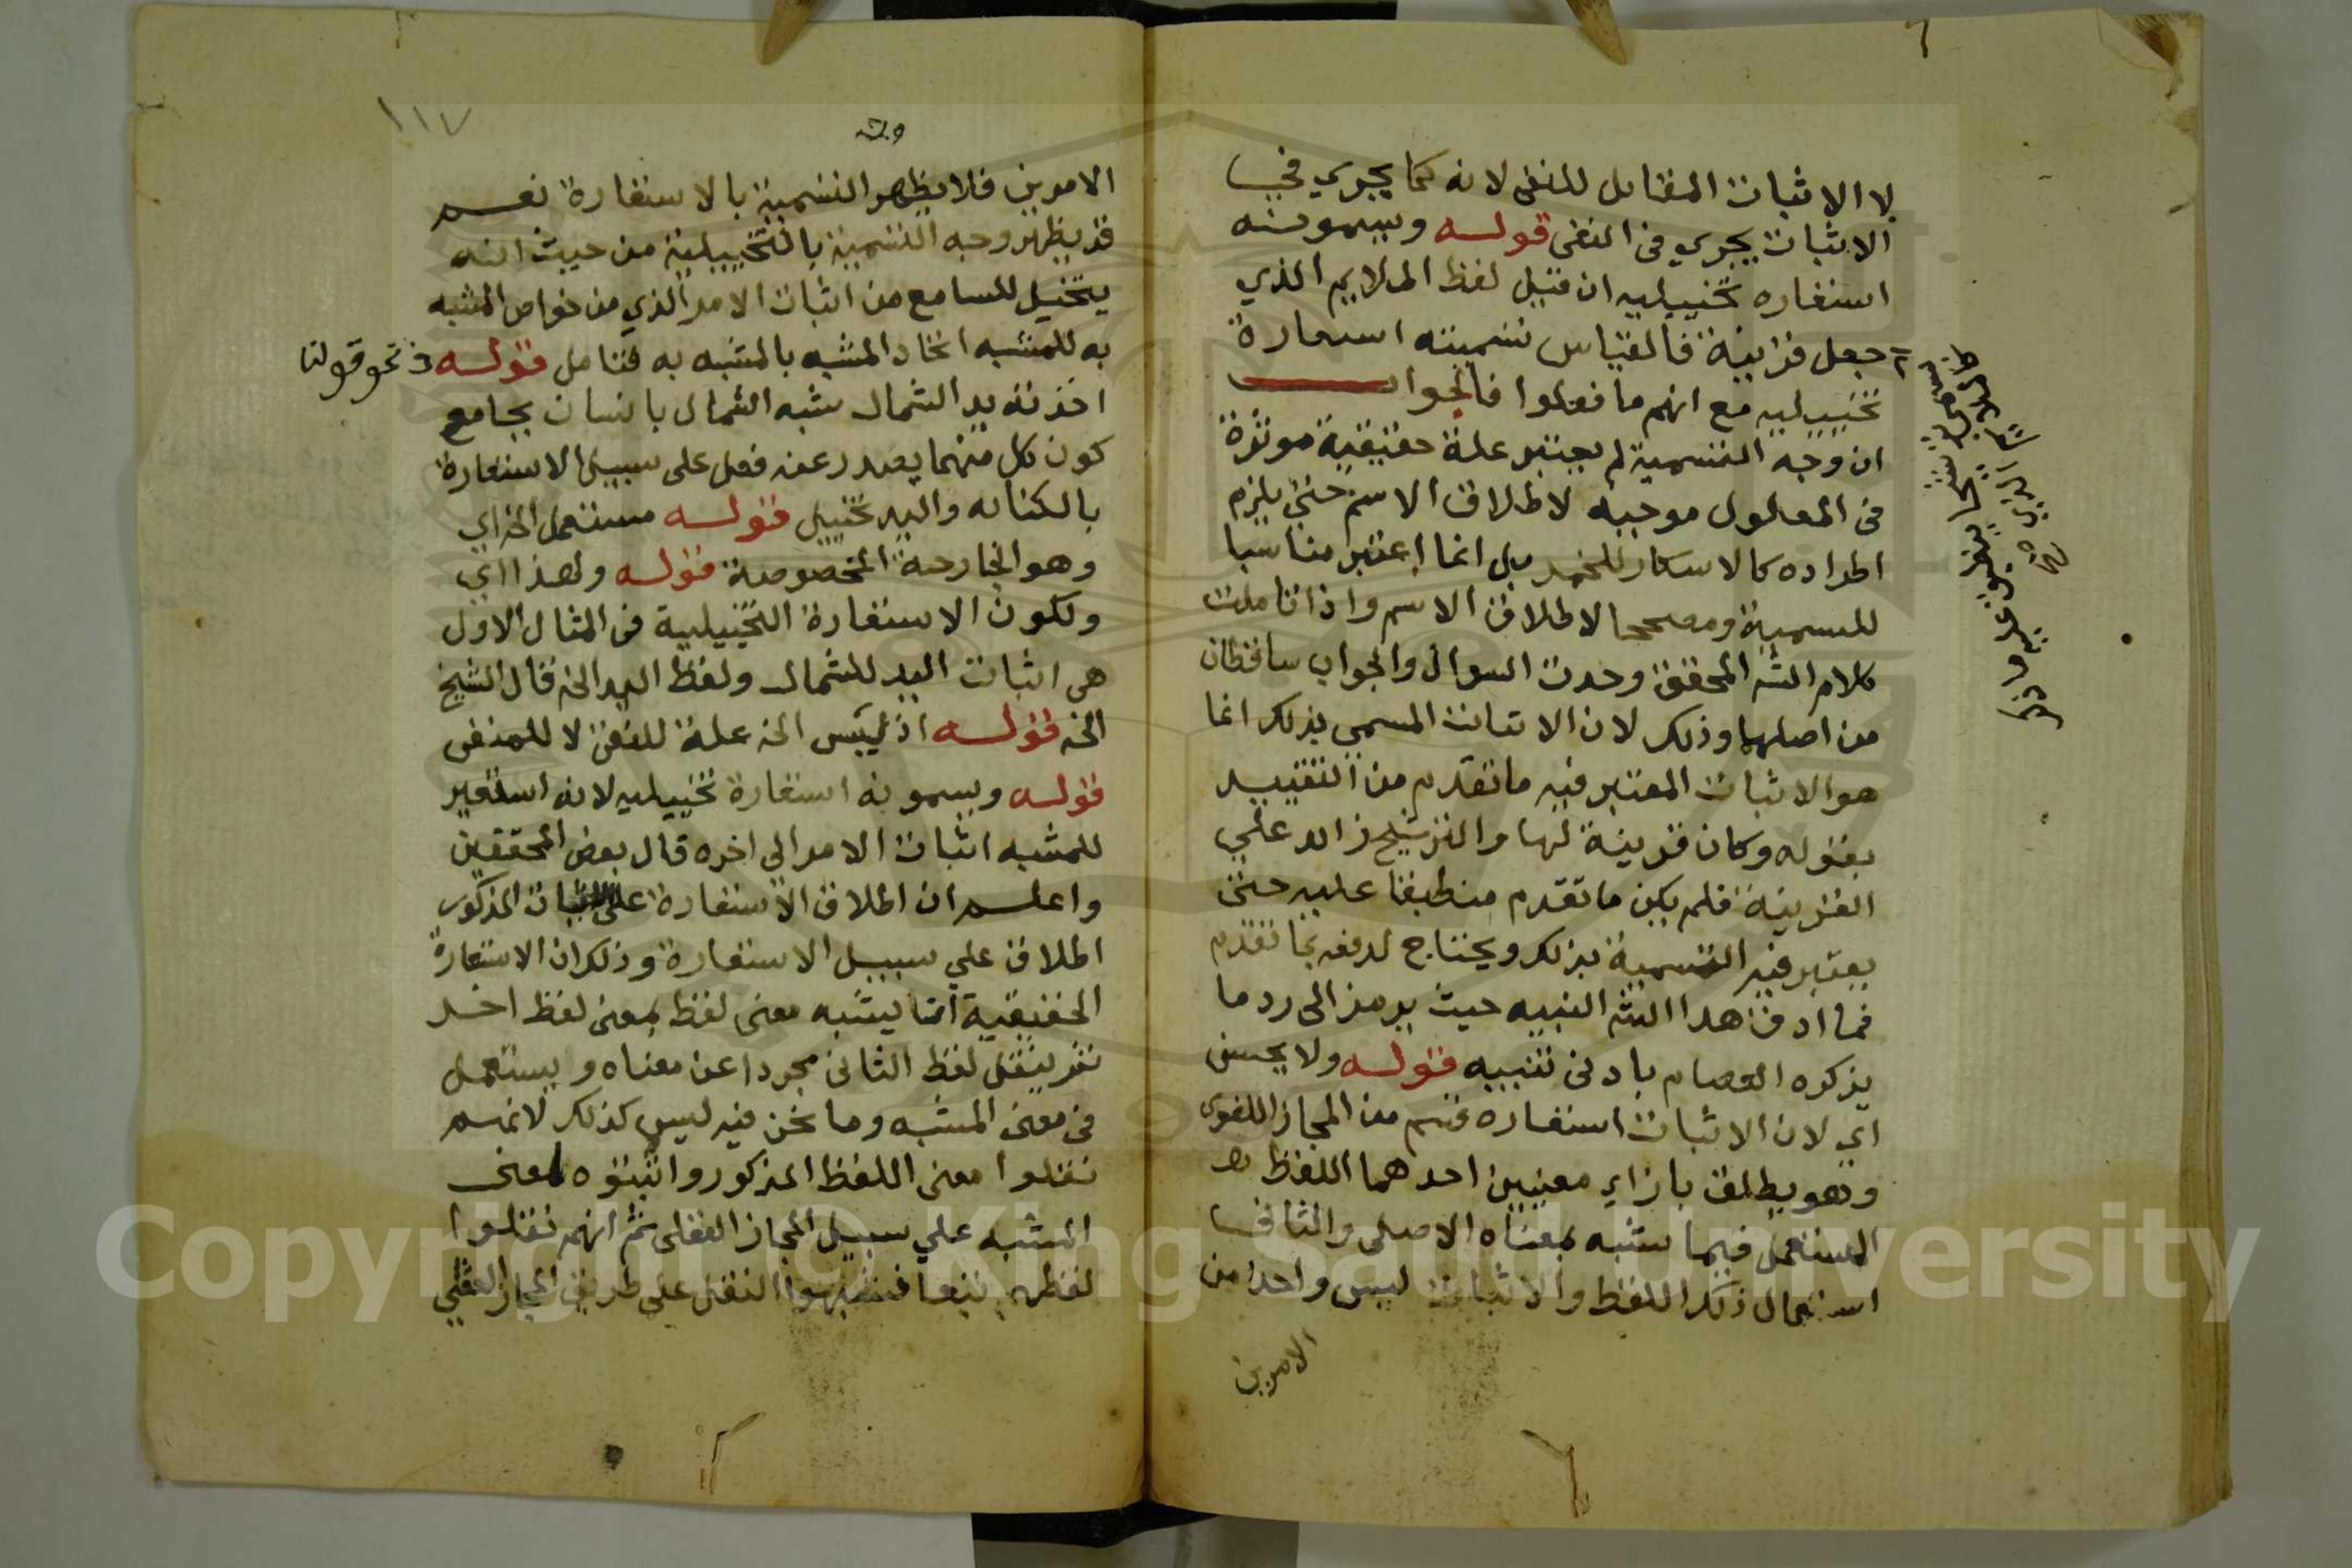 لا الاثبات المقابل للنفى لانه كما يجري في
الاثبات يجري فى النفى قوله ويسمونه
استعاره تخييليه ان قيل لفظ الملايم الذي
جعل قرينة فالقياس تسميته استعارة
تخييليه مع انهم ما فعلوا فالجواب
ان وجه التسمية لم يعتبر علة حقيقية موثرة
فى المعلول موجبه لاطلاق الاسم حتى يلزم
اطراده كالاسكار للخمر بل انما اعتبر مناسبا
للتسمية ومصححا لاطلاق الاسم واذا تاملت
كلام الشه المحقق وجدت السوال والجواب ساقطان
من اصلهما وذلك لان الاثبات المسمي بذلك انما
هو الاثبات المعتبر فيه ما تقدم من التقييد
بقوله وكان قرينة لها والترشيح زائد علي
القرينة فلم يكن ما تقدم منطبقا عليه حتى
يعتبر فيه التسمية بذلك ويحتاج لدفعه بما تقدم
فما ادق هذا الشه النبيه حيث يرمز الى رد ما
يذكره العصام بادنى تنبيه قوله ولا يحسن
اي لان الاثبات استعاره قسم من المجاز اللغوى
وهو يطلق بازاي معنيين احدهما اللفظ
المستعمل فيما شبه بمعناه الاصلى والثاني
استعمال ذلك اللفظ والاثبات ليس واحدا من
الامرين
١١٧
وقف
الامرين فلا يظهر التسمية بالاستعارة نعم
قد يظهر وجه التسمية بالتخييلية من حيث انه
يتخيل للسامع من اثبات الامر الذي من خواص المشبه
به للمشبه اتحاد المشبه بالمشبه به فتامل قوله فى نحو قولنا
اخذته يد الشمال شبه الشمال بانسان بجامع
كون كل منهما يصدر عنه فعل على سبيل الاستعارة
بالكنايه واليد تخييل قوله مستعمل الخ اي
وهو الجارحة المخصوصة قوله ولهذا اي
ولكون الاستعارة التخييلية فى المثال الاول
هى اثبات اليد للشمال ولفظ اليد الخ قال الشيخ
الخ قوله اذ ليس الخ علة للنفى لا للمنفى
قوله ويسمونه استعارة تخييليه لانه استعير
للمشبه اثبات الامر الي اخره قال بعض المحققين
واعلم ان اطلاق الاستعارة على الاثبات المذكور
اطلاق علي سبيل الاستعارة وذلك ان الاستعارة
الحقيقية انما يشبه معنى لفظ بمعنى لفظ اخر
ثم ينقل لفظ الثانى مجردا عن معناه ويستعمل
فى معنى المشبه وما نحن فيه ليس كذلك لانهم
نقلوا معنى اللفظ المذكور واثبتوه لمعنى
المشبه علي سبيل المجاز العقلى ثم انهم نقلوا
لفظهم تبعا فشبهوا النقل على طريق المجاز العقلي